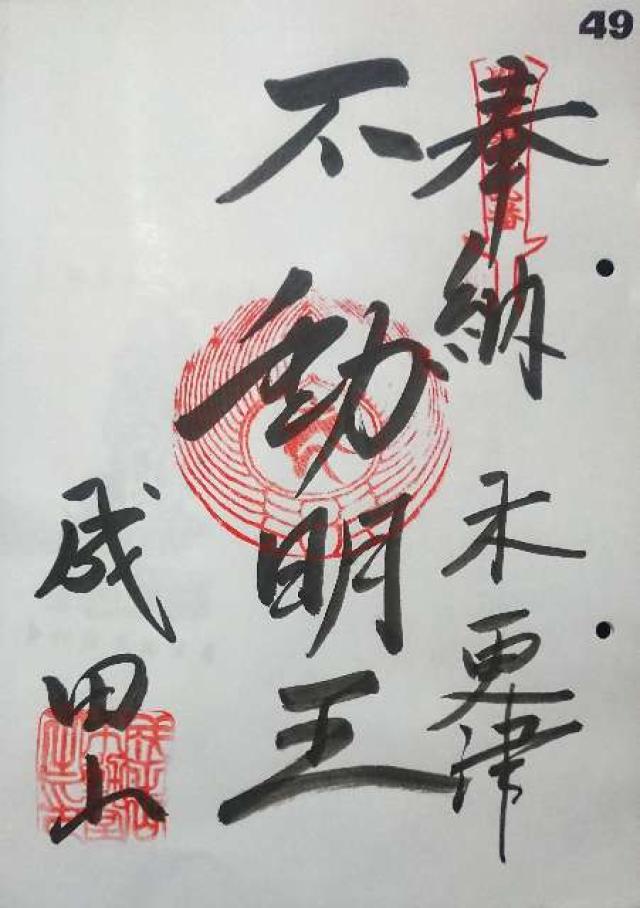 49
奉納 木更津
不動明王
成田山